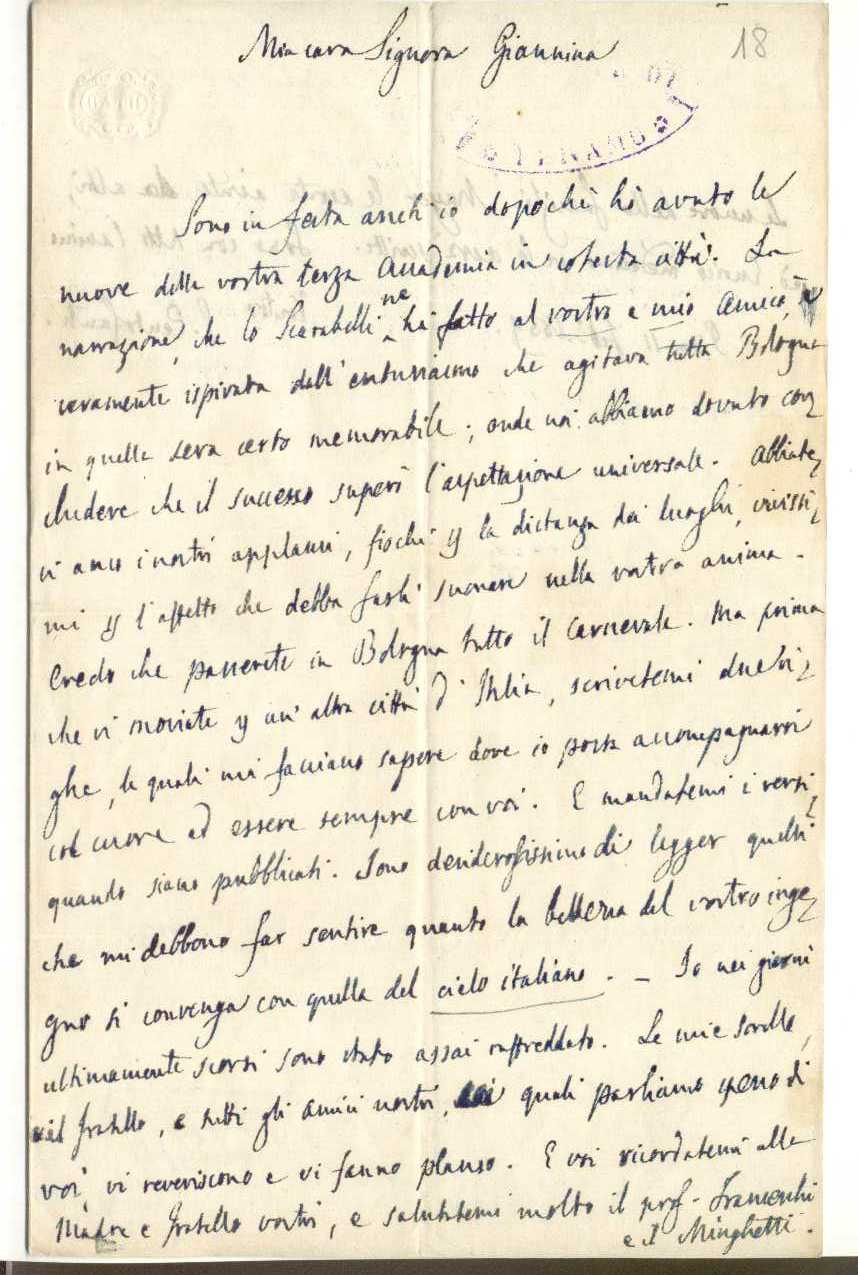 18
Mia cara Signora Giannina
Sono in festa anch'io dopochè hò avuto le
nuove della vostra terza Accademia in cotesta città. La
narrazione, che lo Scarabelli ne hà fatto al vostro e mio amico, è
veramente ispirata dall'entusiasmo che agitava tutta Bologna
in quella sera certo memorabile; onde noi abbiamo dovuto con-
chiudere che il successo superò l'aspettazione universale. Abbiate-
vi anco i nostri applausi, fiochi p la distanza dei luoghi, vivissi-
mi p l'affetto che debba farli suonare nella vostra anima.
Credo che passerete in Bologna tutto il Carnevale. Ma prima
che vi moviate p un'altra città d'Italia, scrivetemi due ri-
ghe, le quali mi facciano sapere dove io possa accompagnarvi
col cuore ed essere sempre con voi. E mandatemi i versi,
quando siano pubblicati. Sono desiderosissimo di legger quelli
che mi debbono far sentire quanto la bellezza del vostro inge-
gno si convenga con quella del cielo italiano. – Io nei giorni
ultimamente scorsi sono stato assai raffreddato. Le mie sorelle,
il fratello, e tutti gli amici nostri, coi quali parliamo speso di
voi, vi reveriscono e vi fanno plauso. E voi ricordatemi alla
Madre e fratello vostri, e salutatemi molto il prof. Franceschi
e I Minghetti.